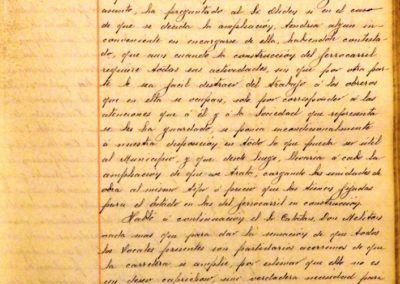 asunto, ha preguntado al Sr. Chides si en el caso
de que se decida la ampliación, tendría algun in-
conveniente en encargarse de ella, habiendole contesta-
do, que aun cuando la construcción del ferrocarril
requiere todas sus actividades, sin que por otra par-
te le sea facil distraer del trabajo á los obreros
que en ella se ocupan, solo por corresponder á las
atenciones que á él y á la Sociedad que representa
se les ha guardado, se ponía incondicionalmente
á nuestra disposición en todo lo que pueda ser útil
al Municipio, y que, desde luego, llevaría á cabo la
ampliación de que se trata, cargando las unidades de
obra al mismo tipo ó precio que las tienen fijadas
para el detalle en las del ferrocarril en construcción.
Habló á continuación el Sr. Don
nada mas que para dar la sensación de que todos
los Vocales presentes son partidarios acerrimos de que
la carretera se amplíe, por estimar que ello no es
un deseo caprichoso, sino verdadera necesidad para